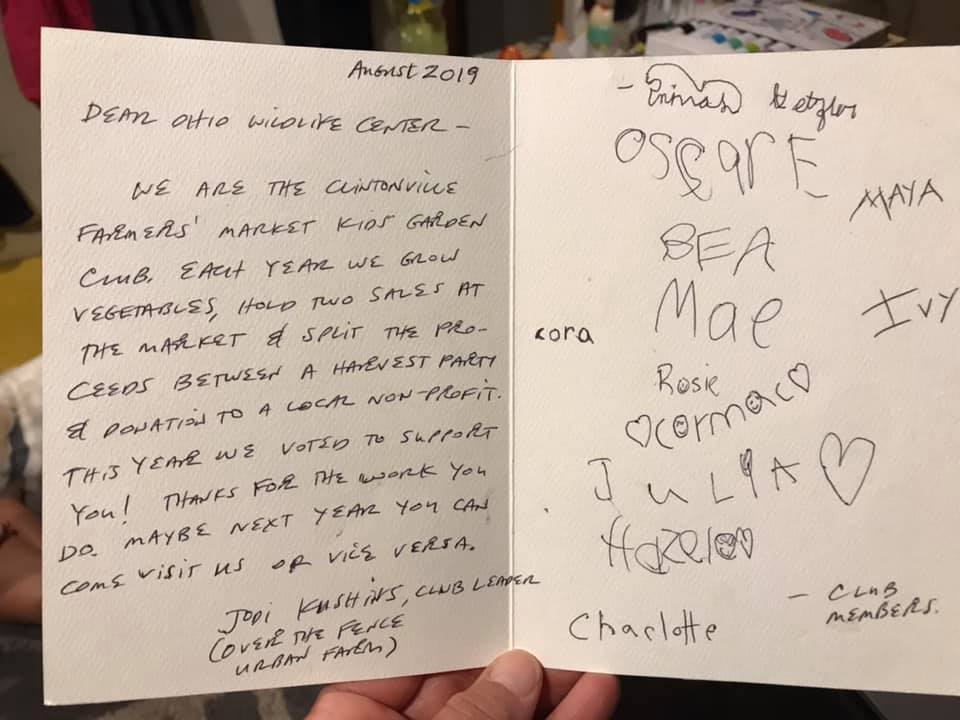 AUGUST 2019
DEAR OHIO WILDLIFE CENTER –
WE ARE THE CLINTONVILLE
FARMERS' MARKET KIDS GARDEN
CLUB. EACH YEAR WE GROW
VEGETABLES, HOLD TWO SALES AT
THE MARKET & SPLIT THE PRO-
CEEDS BETWEEN A HARVEST PARTY
& DONATION TO A LOCAL NON-PROFIT.
THIS YEAR WE VOTED TO SUPPORT
YOU! THANKS FOR THE WORK YOU
DO. MAYBE NEXT YEAR YOU CAN
COME VISIT US OR VICE VERSA.
JODI KUSHINS, CLUB LEADER
(OVER THE FENCE
URBAN FARM)
Getzler
OSCAR E
MAYA
BEA
Mae
IVY
cora
Rosie
cormac
JULIA
Hazel
Charlotte
– CLUB
MEMBERS.